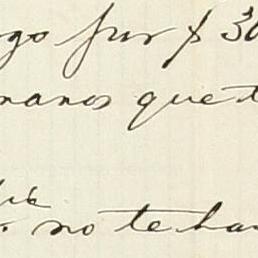 go por $ 30
manos que t
no te ha